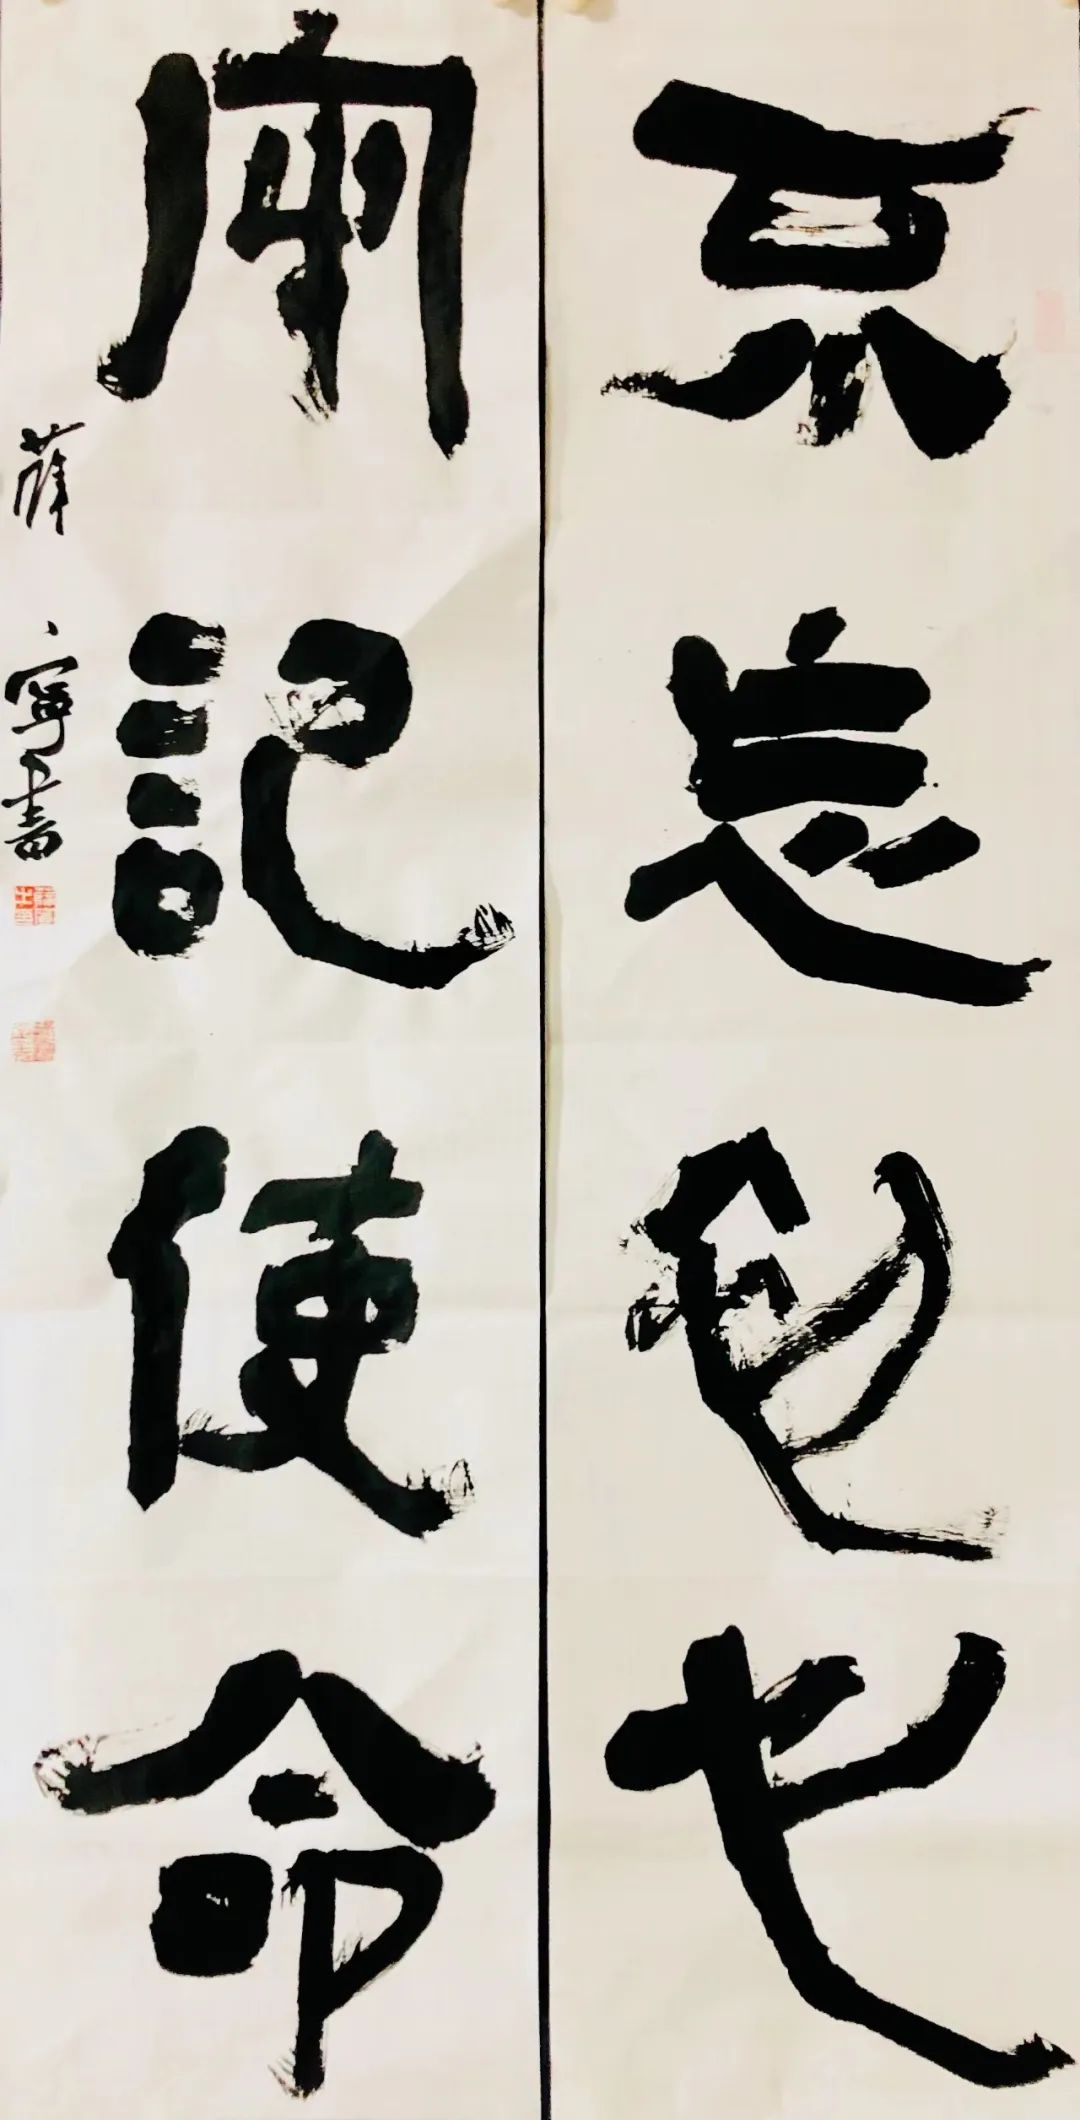 不忘初心
牢記使命
薛寧書